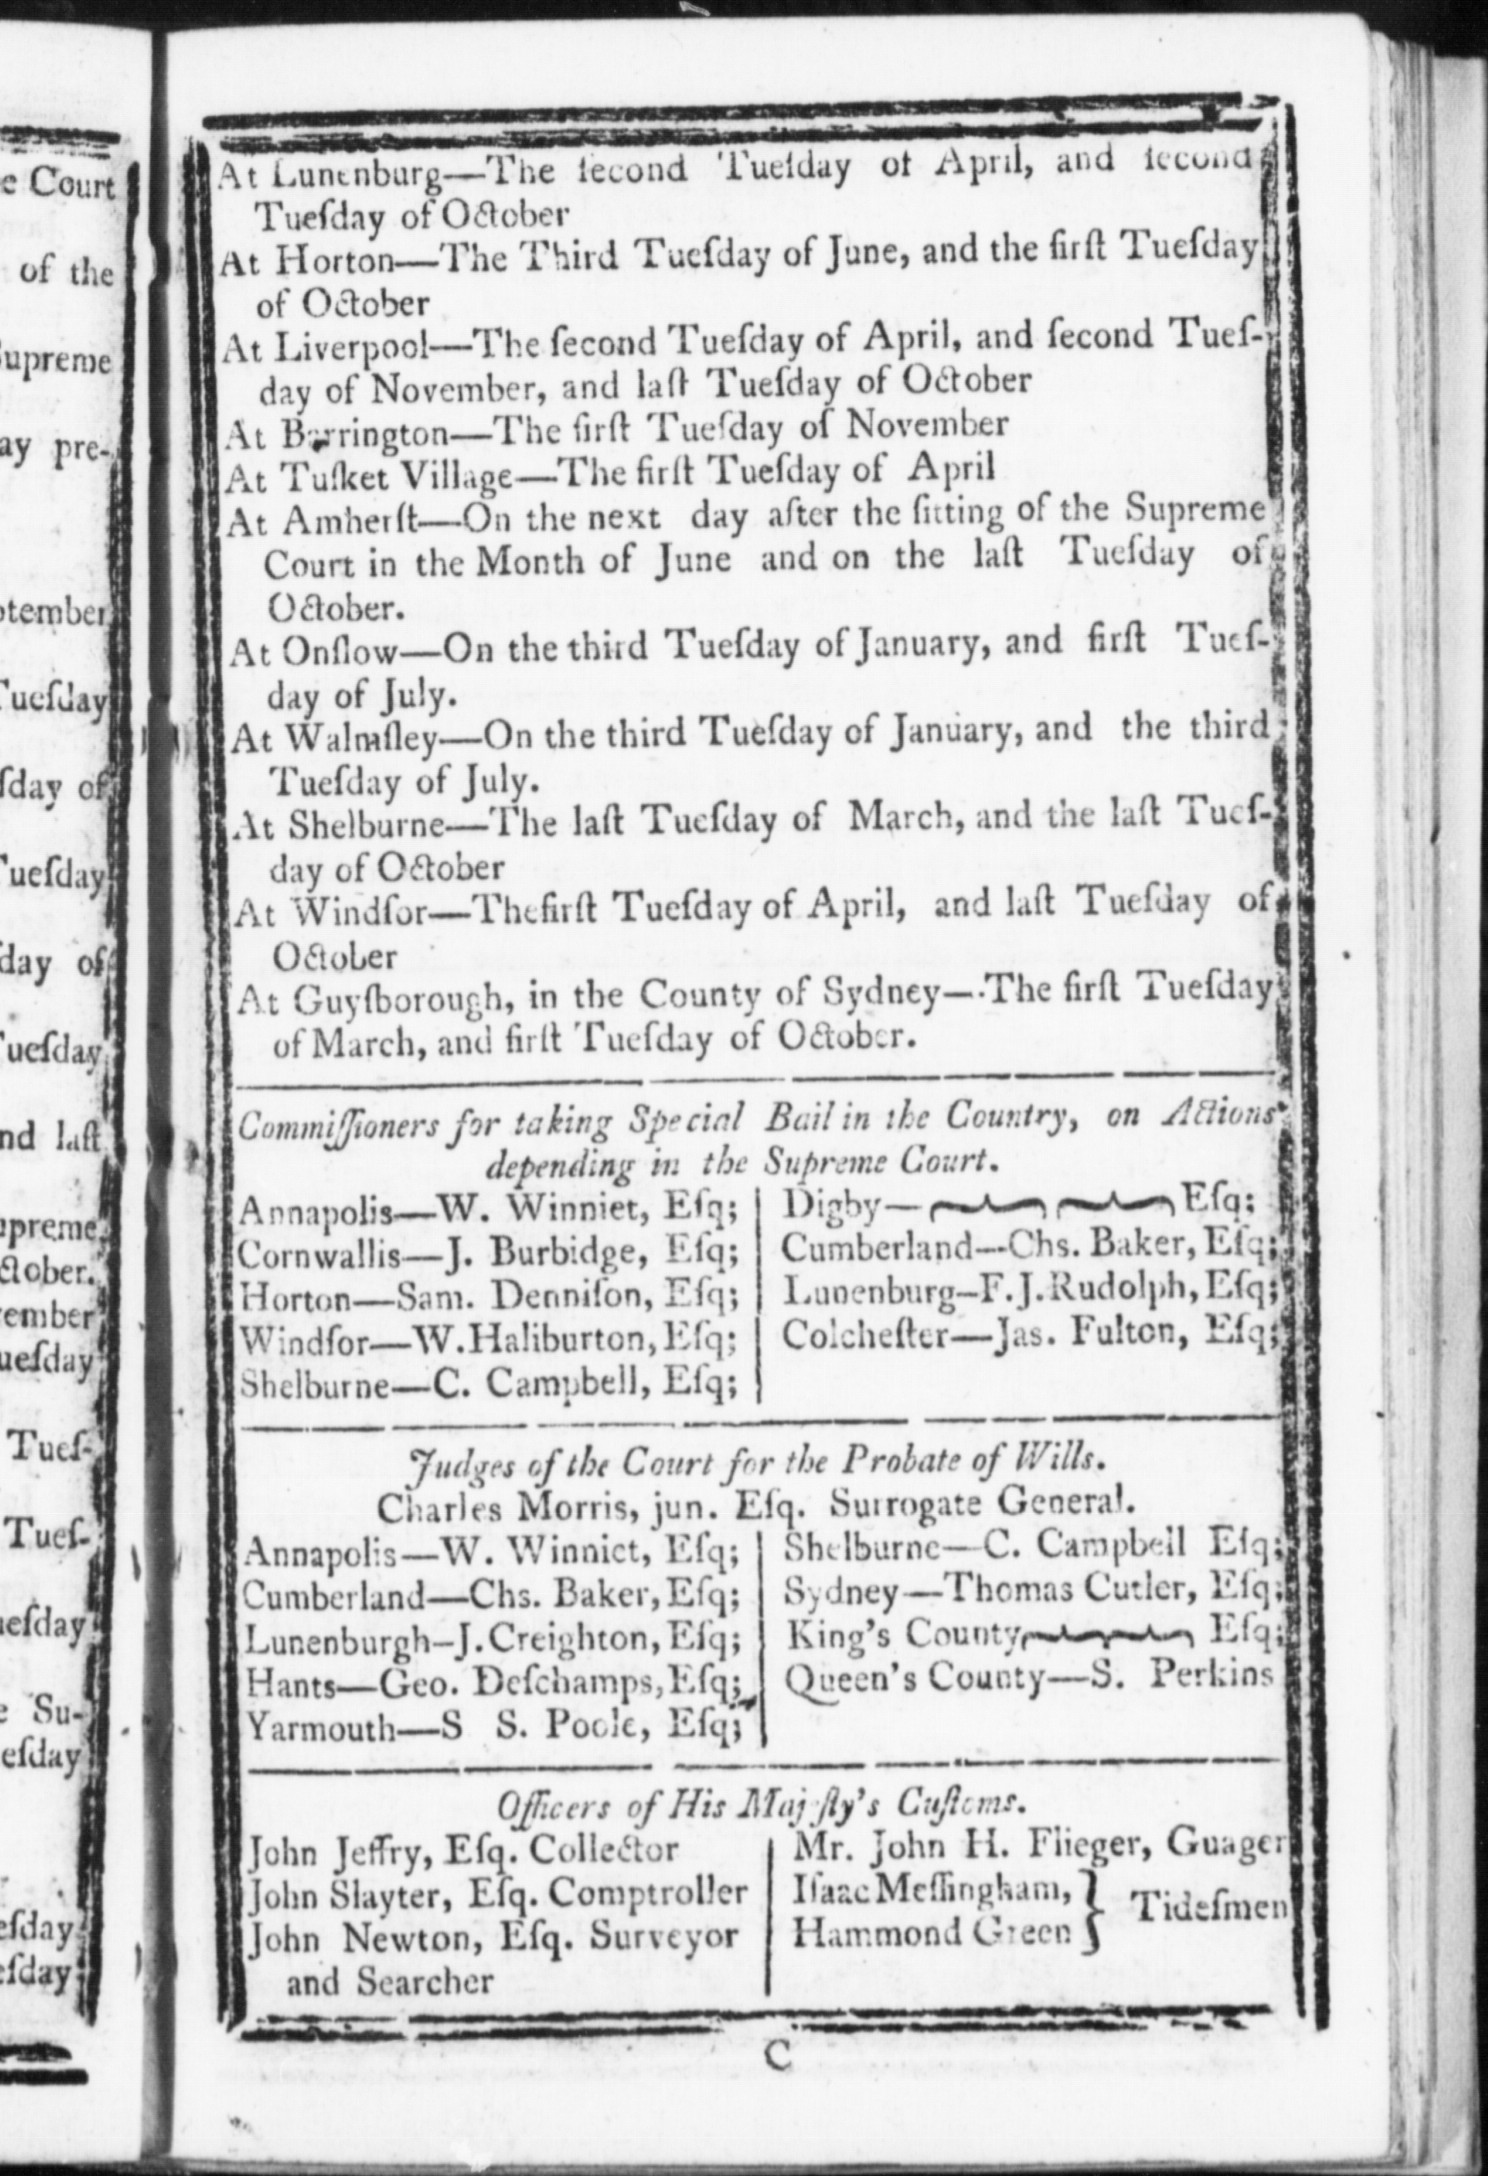 e Court
of the
upreme
ay pre-
tember
Tueſday
ſday of
Tueſday
day of
ueſday
nd laſt
upreme
ctober.
ember
ueſday
Tueſ-
Tueſ-
ueſday
e Su-
eſday
eſday
eſday
At Lunenburg—The ſecond Tueſday of April, and ſecond
Tueſday of October
At Horton—The Third Tueſday of June, and the firſt Tueſday
of October
At Liverpool—The ſecond Tueſday of April, and ſecond Tueſ-
day of November, and laſt Tueſday of October
At Barrington—The firſt Tueſday of November
At Tuſket Village—The firſt Tueſday of April
At Amherſt—On the next day after the ſitting of the Supreme
Court in the Month of June and on the laſt Tueſday of
October.
At Onſlow—On the third Tueſday of January, and firſt Tueſ-
day of July.
At Walmſley—On the third Tueſday of January, and the third
Tueſday of July.
At Shelburne—The laſt Tueſday of March, and the laſt Tueſ-
day of October
At Windſor—Thefirſt Tueſday of April, and laſt Tueſday of
October
At Guyſborough, in the County of Sydney—The firſt Tueſday
of March, and firſt Tueſday of October.
Commiſſioners for taking Special Bail in the Country, on Actions
depending in the Supreme Court.
Annapolis—W. Winniet, Eſq;
Cornwallis—J. Burbidge, Eſq;
Horton—Sam. Denniſon, Eſq;
Windſor—W. Haliburton, Eſq;
Shelburne—C. Campbell, Eſq;
Digby— Eſq;
Cumberland—Chs. Baker, Eſq;
Lunenburg—F. J. Rudolph, Eſq;
Colcheſter—Jas. Fulton, Eſq;
Judges of the Court for the Probate of Wills.
Charles Morris, jun. Eſq. Surrogate General.
Annapolis—W. Winniet, Eſq;
Cumberland—Chs. Baker, Eſq;
Lunenburgh—J. Creighton, Eſq;
Hants—Geo. Deſchamps, Eſq;
Yarmouth—S S. Poole, Eſq;
Shelburne—C. Campbell Eſq;
Sydney—Thomas Cutler, Eſq;
King's County Eſq;
Queen's County—S. Perkins
Officers of His Majeſty's Cuſtoms.
John Jeffry, Eſq. Collector
John Slayter, Eſq. Comptroller
John Newton, Eſq. Surveyor
and Searcher
Mr. John H. Flieger, Guager
Iſaac Meſſingham,
Hammond Green } Tideſmen
C